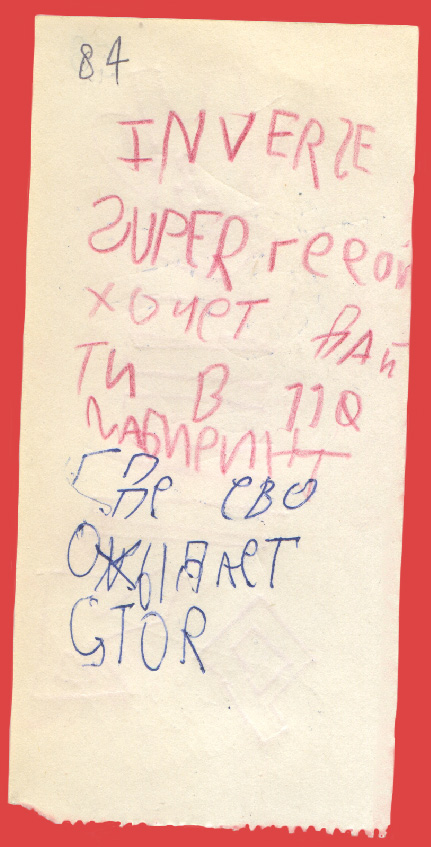 84
INVERSE
SUPER геерой
хочет вай
ти в 11Q
лабиринт
где ево
ожыдает
GTOR